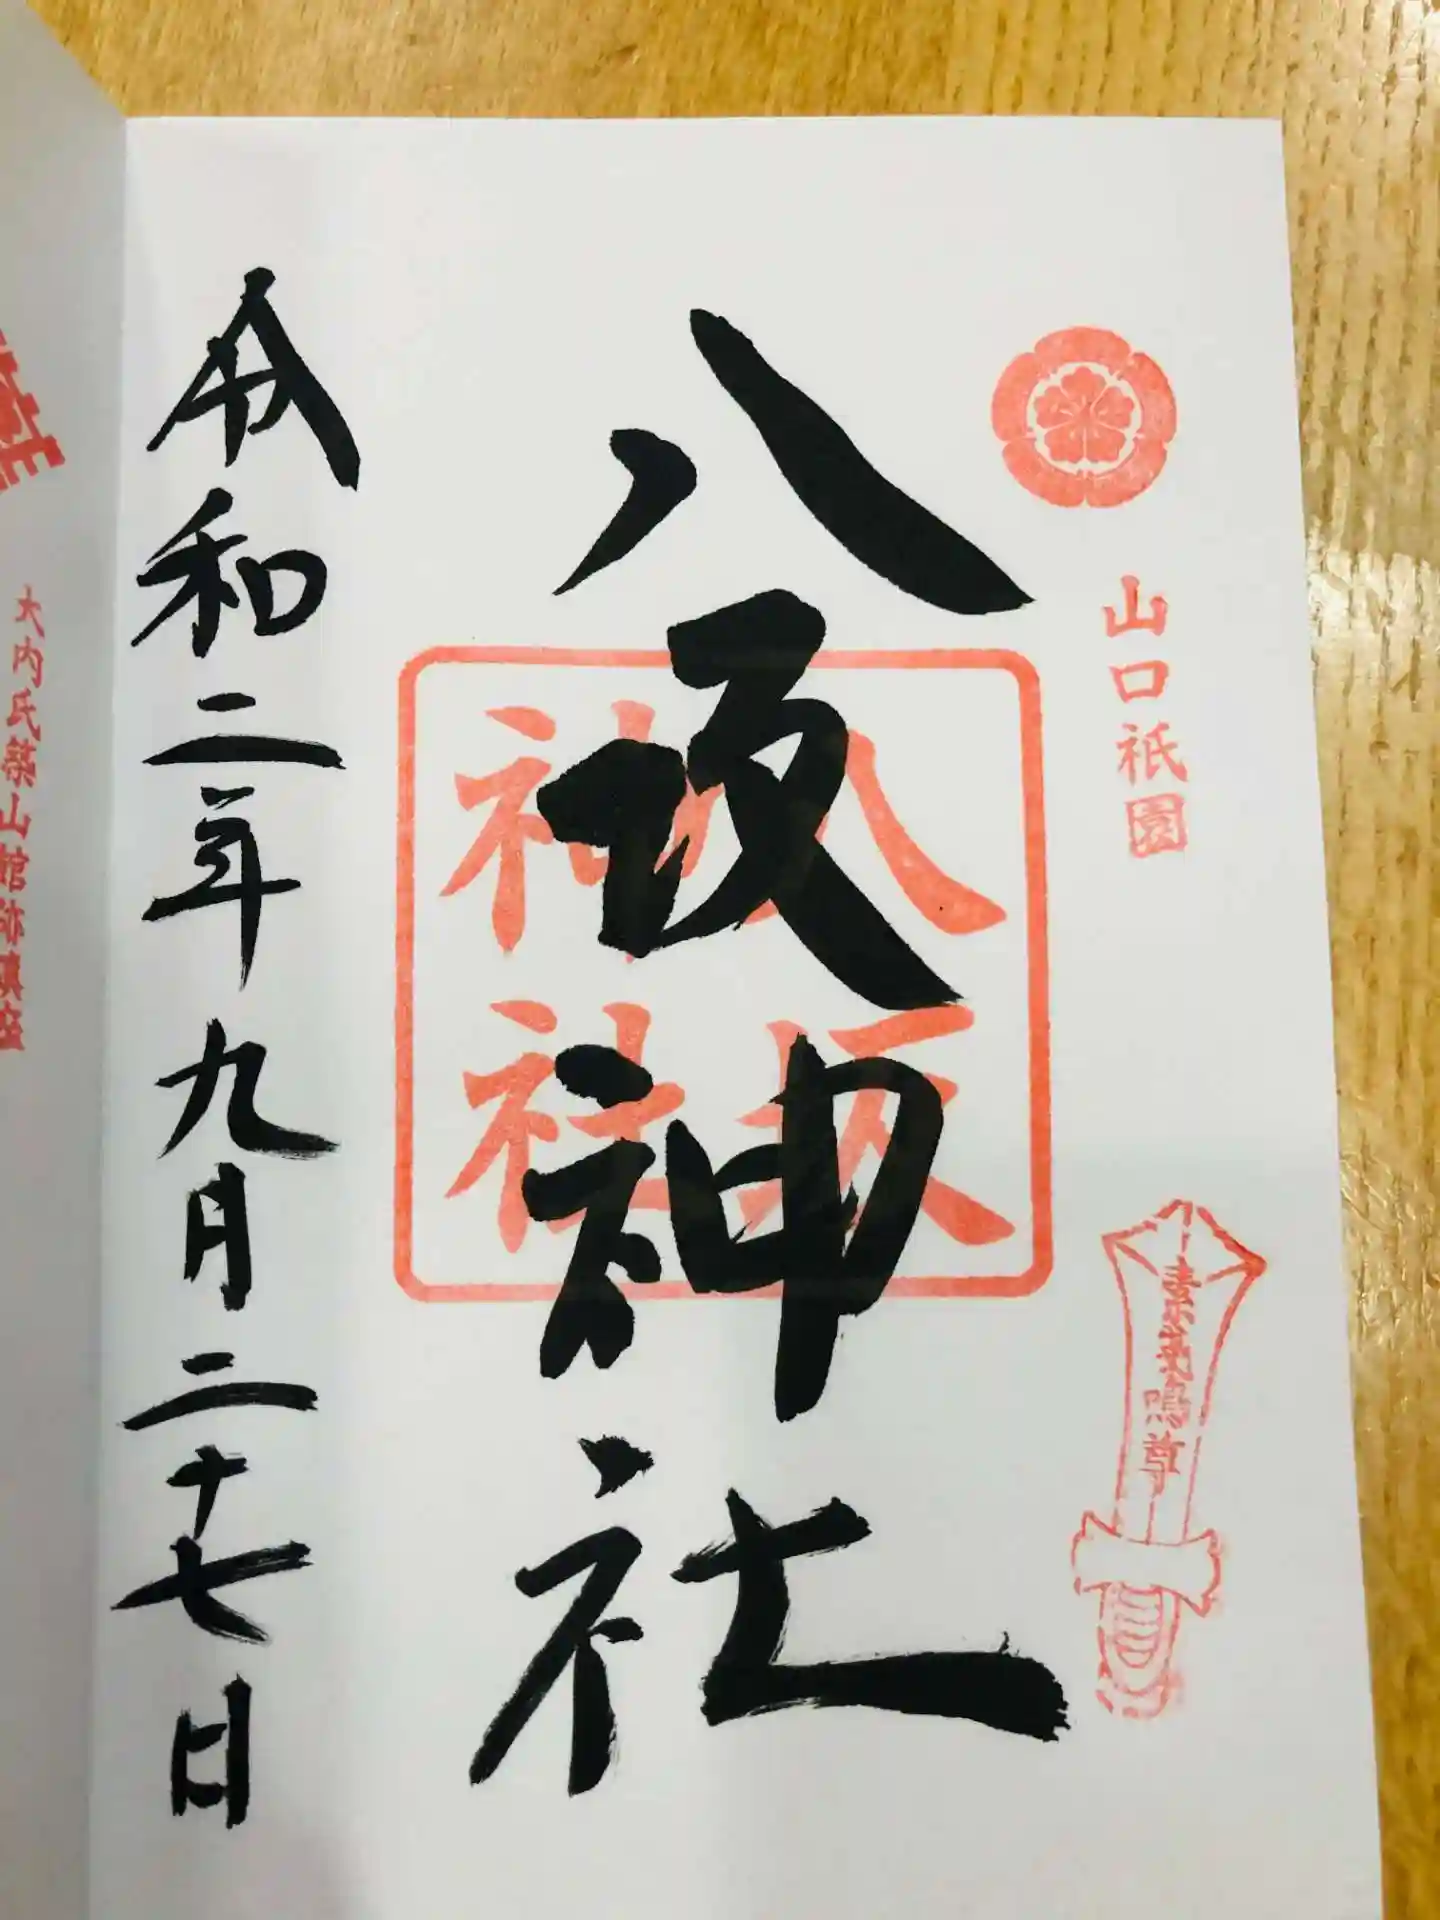 山口祇園
素戔嗚尊
八坂神社
八坂
神社
令和二年九月二十七日
大内氏築山館跡鎮座